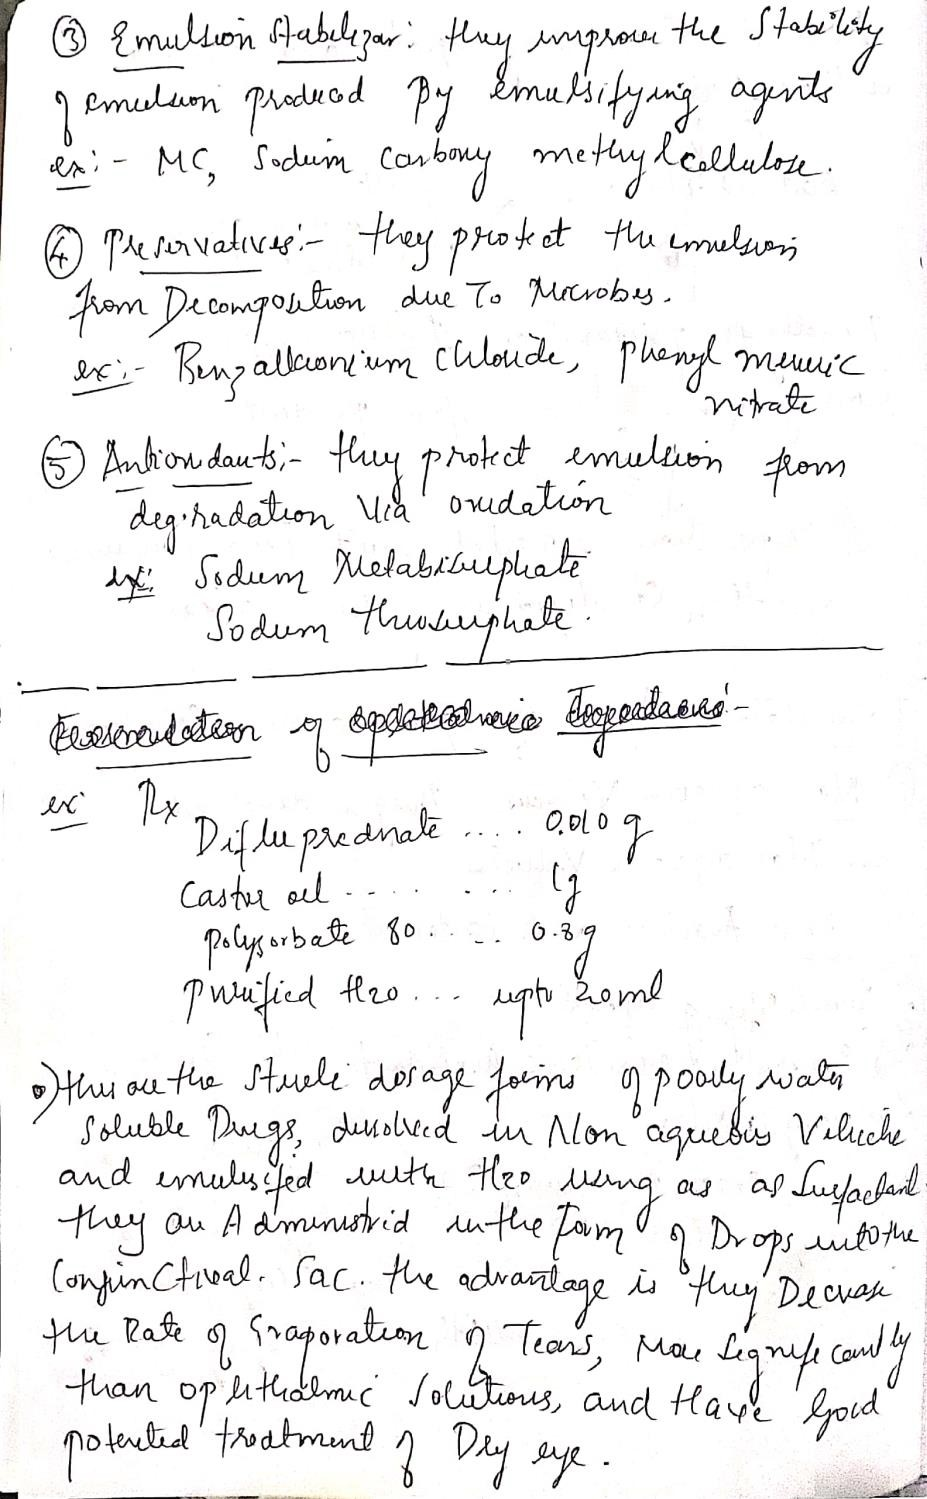 ③ Emulsion Stabilizar: they improve the Stability
of emulsion produced By emulsifying agents
ex:- MC, Sodium Carboxy methylcellulose.
④ Preservatives:- they protect the emulsion
from Decomposition due To Microbes.
ex:- Benzalkonium chloride, phenyl mercuric
nitrate
⑤ Antioxidants:- they protect emulsion from
degradation via oxidation
ex: Sodium Metabisulphate
Sodium thiosulphate.
of
ex Rx
Difluprednate .... 0.010 g
Castor oil ... ... 1g
polysorbate 80 .... 0.8g
purified H20 ... upto 20ml
thes are the Sterile dosage forms of poorly water
Soluble Drugs, dissolved in Non aqueous Vehicle
and emulsified with H20 using as as Surfactant
they are Administrid in the Form of Drops into the
Conjunctival. Sac. the advantage is they Decrease
the Rate of Evaporation of Tears, More Significantly
than ophthalmic Solutions, and Have Good
potential treatment of Dry eye.